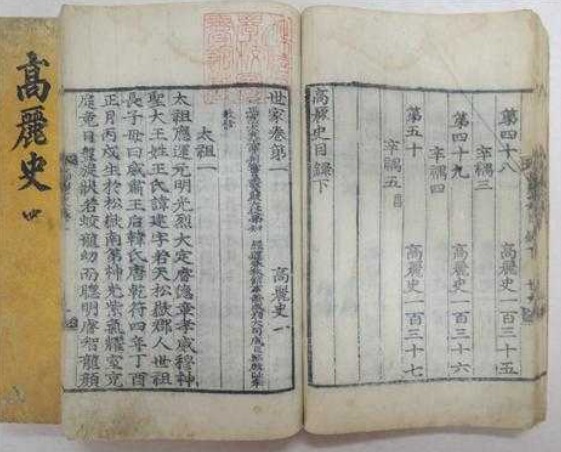 高麗史 四
第四十八 高麗史一百三十五
辛禑三
第四十九 高麗史一百三十六
辛禑四
第五十 高麗史一百三十七
辛禑五
高麗史目錄下
世家卷第一 高麗史一
太祖一
太祖應運元明光烈大定睿德章孝威穆神
聖大王姓王氏諱建字若天松嶽郡人世祖
長子母曰威肅王后韓氏唐乾符四年丁酉
正月丙戌生於松嶽南第神光紫氣耀室充
庭竟日盤旋狀若蛟龍幼而聰明睿智龍顏